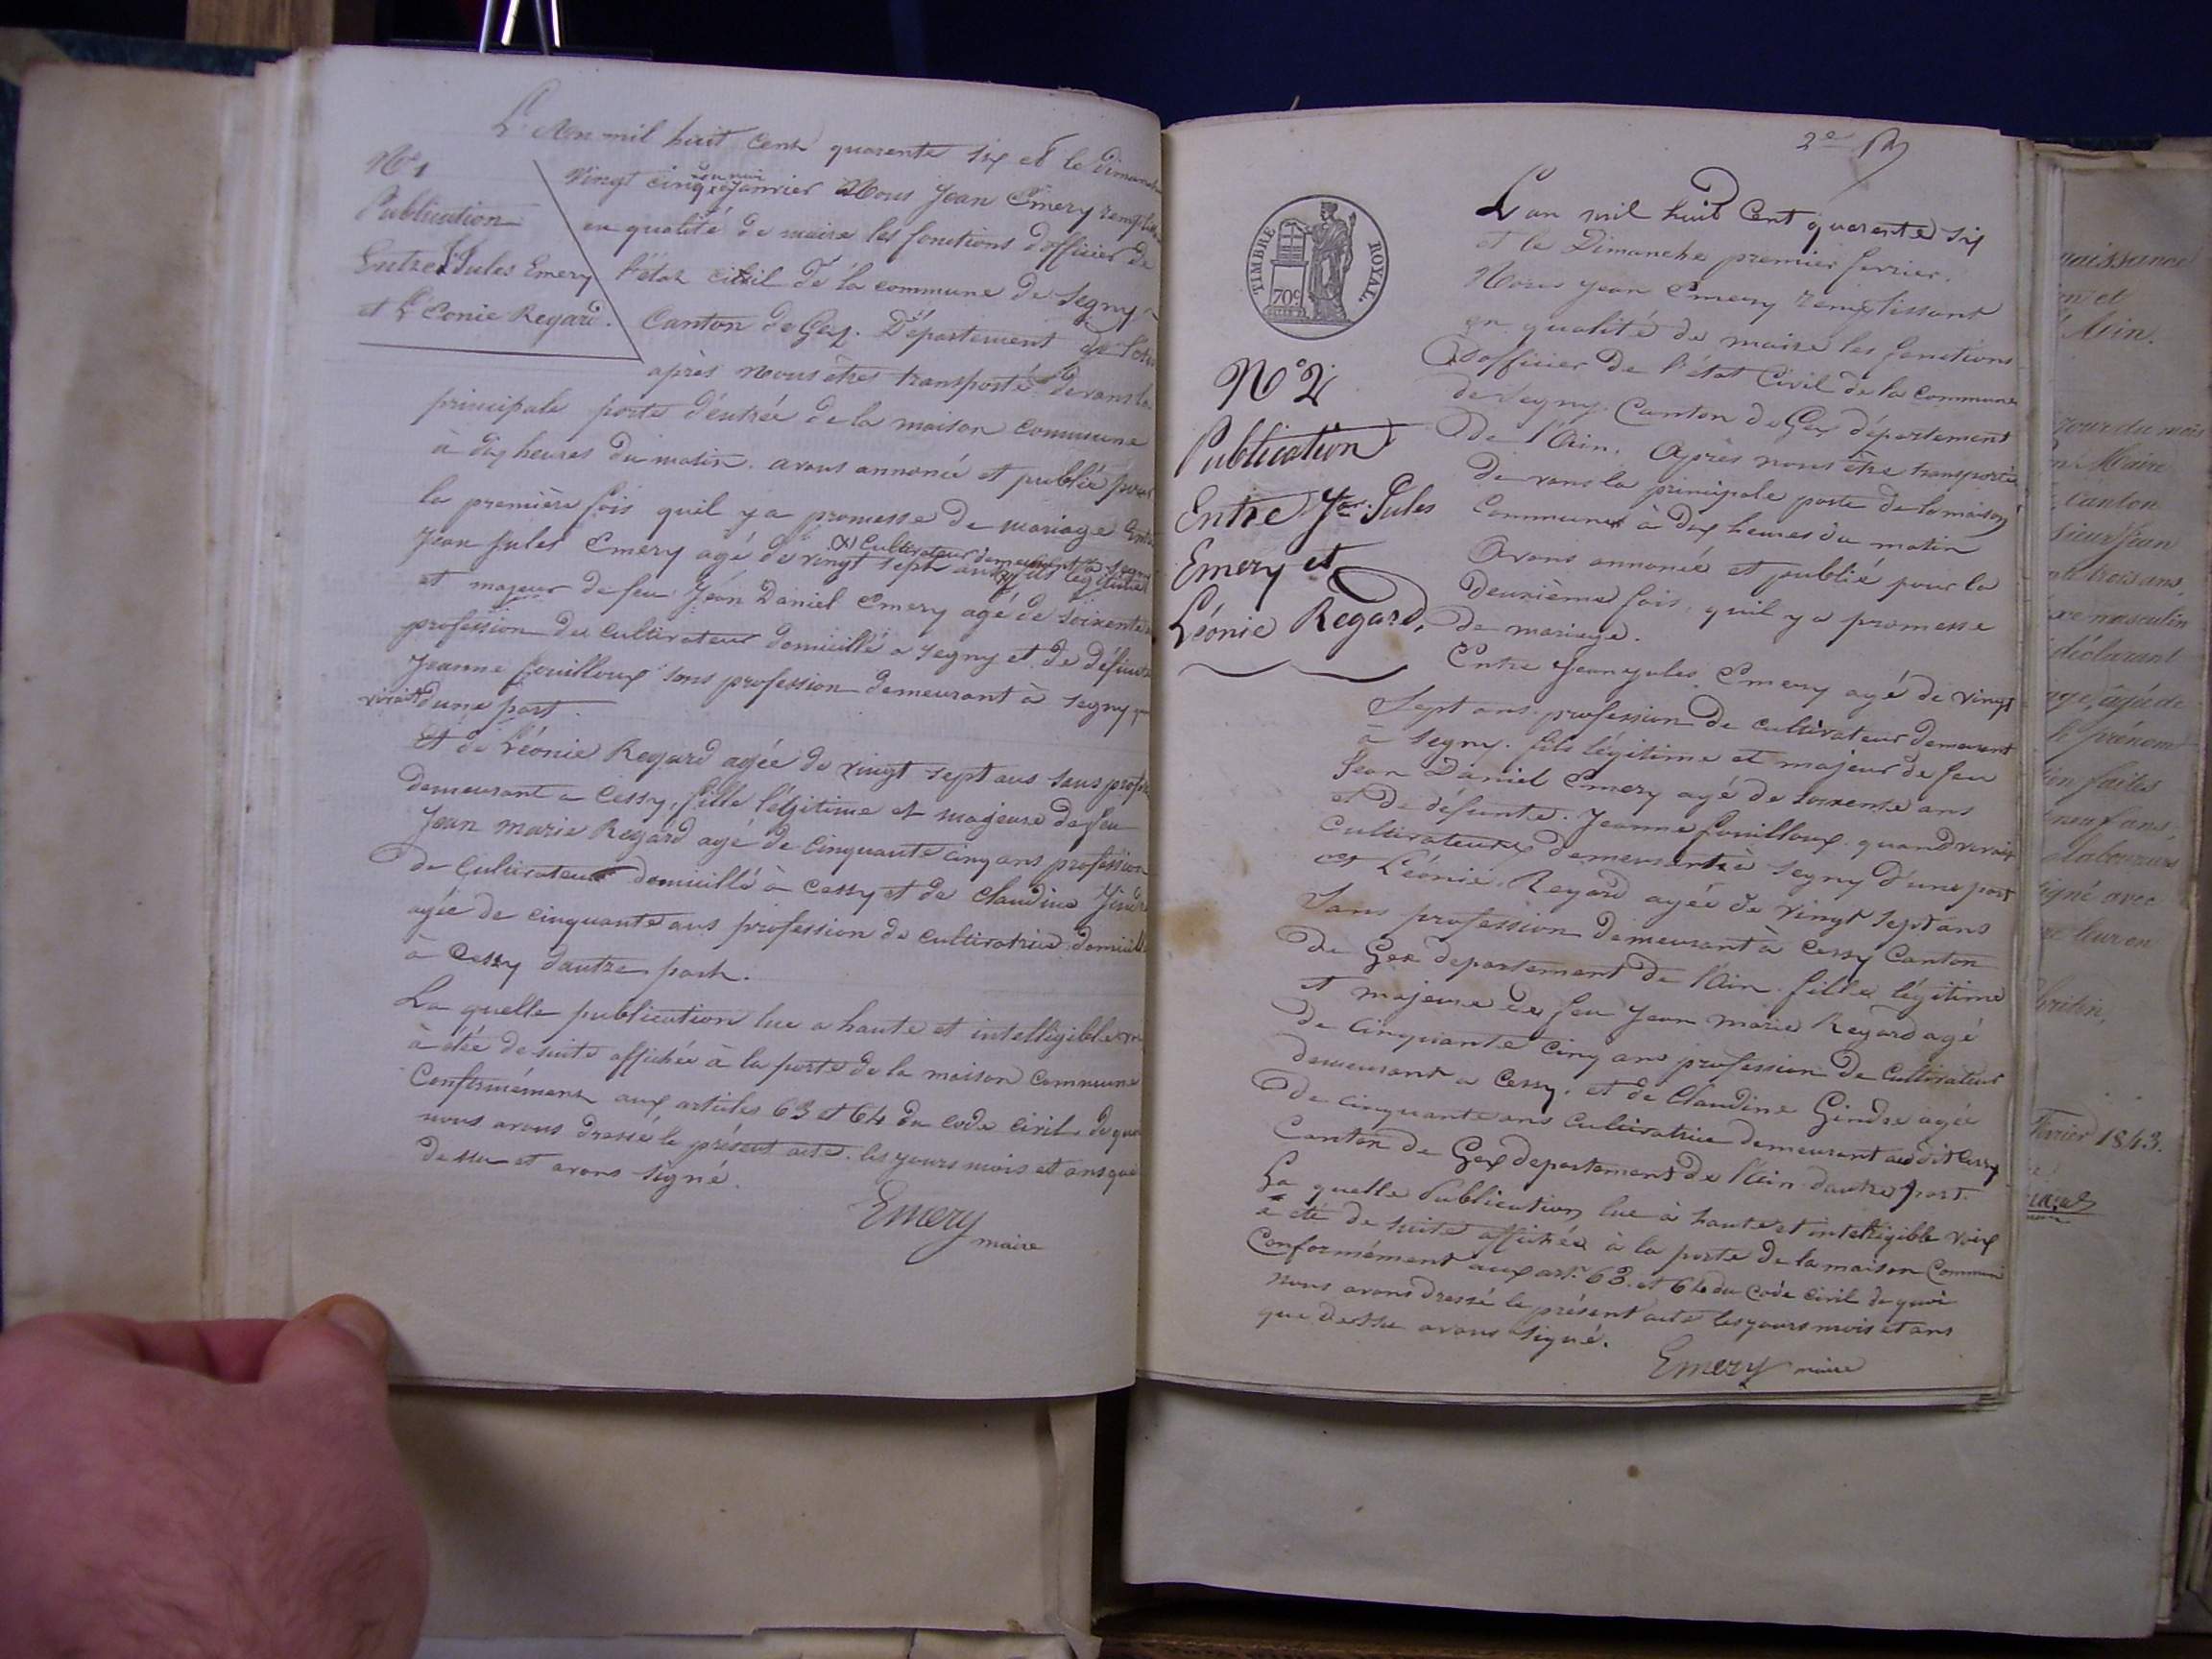 L'An mil huit cent quarente six et le Dimanche
N° 1
Publication
Entre Jn Jules Emery
et Léonie Regard.
vingt cinq du moi Janvier Nous Jean Emery
en qualité de maire les fonctions d'officier de
l'état civil de la commune de Segny
Canton de Gex. Département de l'Ain
après nous êtres transporté devans la
principale porte d'entrée de la maison commune
à dix heures du matin. avons annoncé et publié pour
la première fois quil y a promesse de mariage Entre
Jean Jules Emery agé de vingt sept ans (x) fils légitime
(x) Cultivateur demeurant à Segny
et majeur de feu Jean Daniel Emery agé de soixente
profession de cultivateur domicillé a Segny et de défunte
Jeanne fouilloux sans profession demeurant à Segny
vivait d'une part.
Et de Léonie Regard agée de vingt sept ans sans
demeurant a Cessy, fille légitime et majeure de feu
Jean marie Regard agé de cinquante cinq ans profession
de cultivateur domicillé à Cessy et de Claudine
agée de cinquante ans profession de cultivatrice
à Cessy dautre part.
La quelle publication lue a haute et intelligible
à étée de suite affichée à la porte de la maison commune
Conformément aux articles 63 et 64 du code civil. de quoi
nous avons dressé le présent acte. les jours mois et ans que
dessu et avons signé.
Emery
maire
2e
TIMBRE ROYAL
70c
L'an mil huit Cent quarente six
et le Dimanche premier fevrier.
Nous Jean Emery remplissant
en qualité de maire les fonctions
d'officier de l'état Civil de la commune
de Segny. Canton de Gex département
de l'Ain. Après nous être transporté
devans la principale porte de la maison
Commune à dix heures du matin
Avons annoncé et publié pour la
deuxième fois, quil y a promesse
de mariage.
N° 2
Publication
Entre Jn Jules
Emery et
Léonie Regard.
Entre Jean jules Emery agé de vingt
Sept ans. profession de cultivateur demeurant
à Segny. fils légitime et majeur de feu
Jean Daniel Emery agé de soixente ans
et de défunte. Jeanne fouilloux quand vivait
cultivateurs demeurant à Segny d'une part
et Léonie. Regard agée de vingt sept ans
Sans profession demeurant à Cessy Canton
de Gex departement de l'Ain. fille légitime
et majeure de feu Jean marie Regard agé
de cinquante cinq ans profession de cultivateur
demeurant a Cessy, et de Claudine Gindre agée
de cinquante ans cultivatrice demeurant audit Cessy
Canton de Gex departement de l'Ain dautre part.
La quelle Publication lue à haute et intelligible voix
a été de suite affichée à la porte de la maison Commune
Conformément aux art. 63. et 64 du Code Civil de quoi
nous avons dressé le présent acte les jours mois et ans
que dessu avons signé.
Emery maire
naissance
on et
l'Ain.
jour du mois
Maire
canton
Sieur Jean
trois ans,
masculin
déclarant
âgé de
prénom
faites
neuf ans,
laboureurs
signé avec
leur en
février 1843.